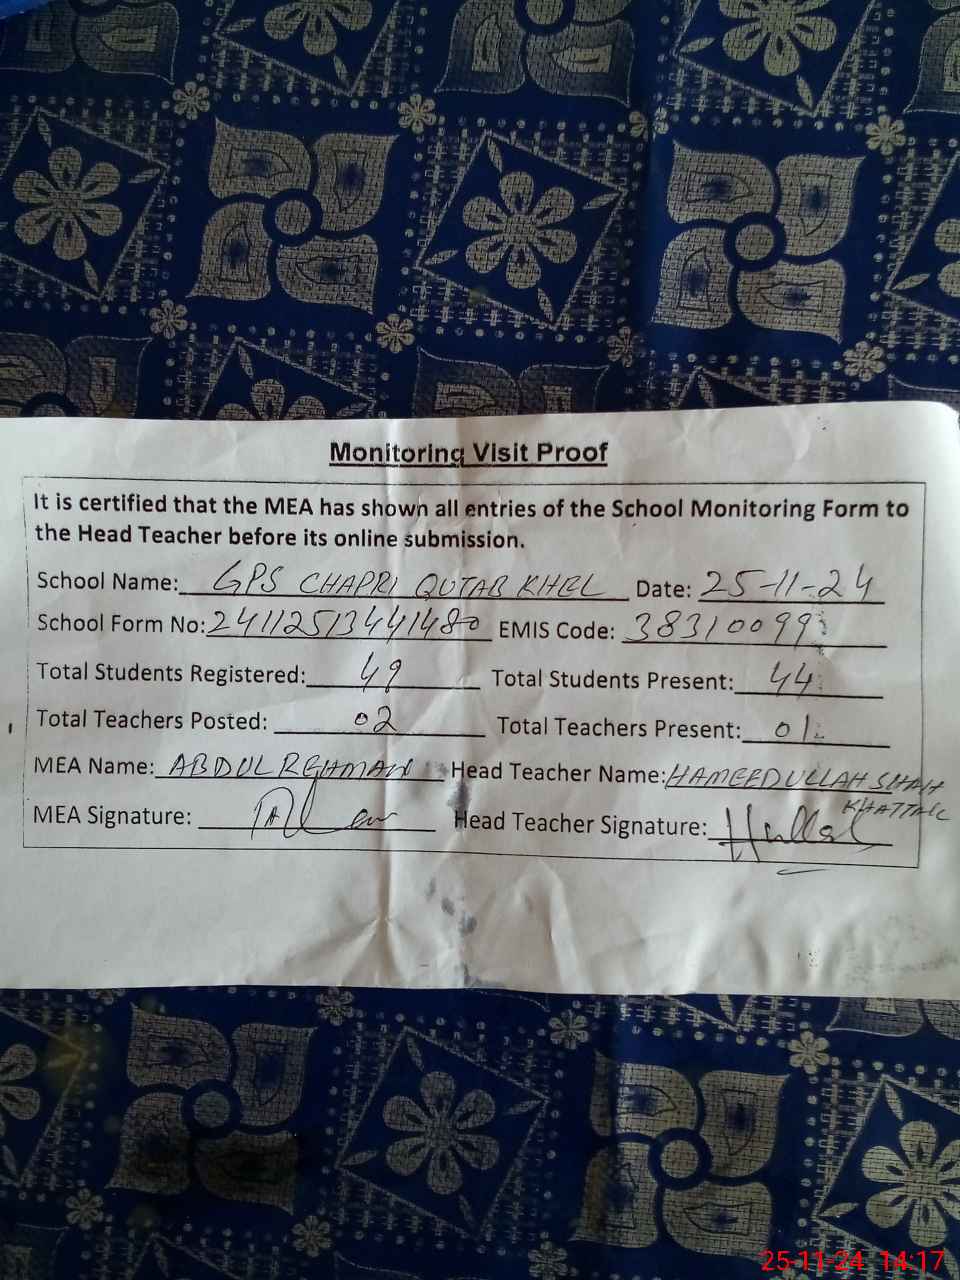 Monitoring Visit Proof
It is certified that the MEA has shown all entries of the School Monitoring Form to
the Head Teacher before its online submission.
School Name: GPS CHAPRI QUTAB KHEL Date: 25-11-24
School Form No: 24112513441480 EMIS Code: 38310099
Total Students Registered: 49 Total Students Present: 44
Total Teachers Posted: 02 Total Teachers Present: 01
MEA Name: ABDUL REHMAN Head Teacher Name: HAMEEDULLAH SHAH
KHATTAK
MEA Signature: Head Teacher Signature:
25-11-24 14:17